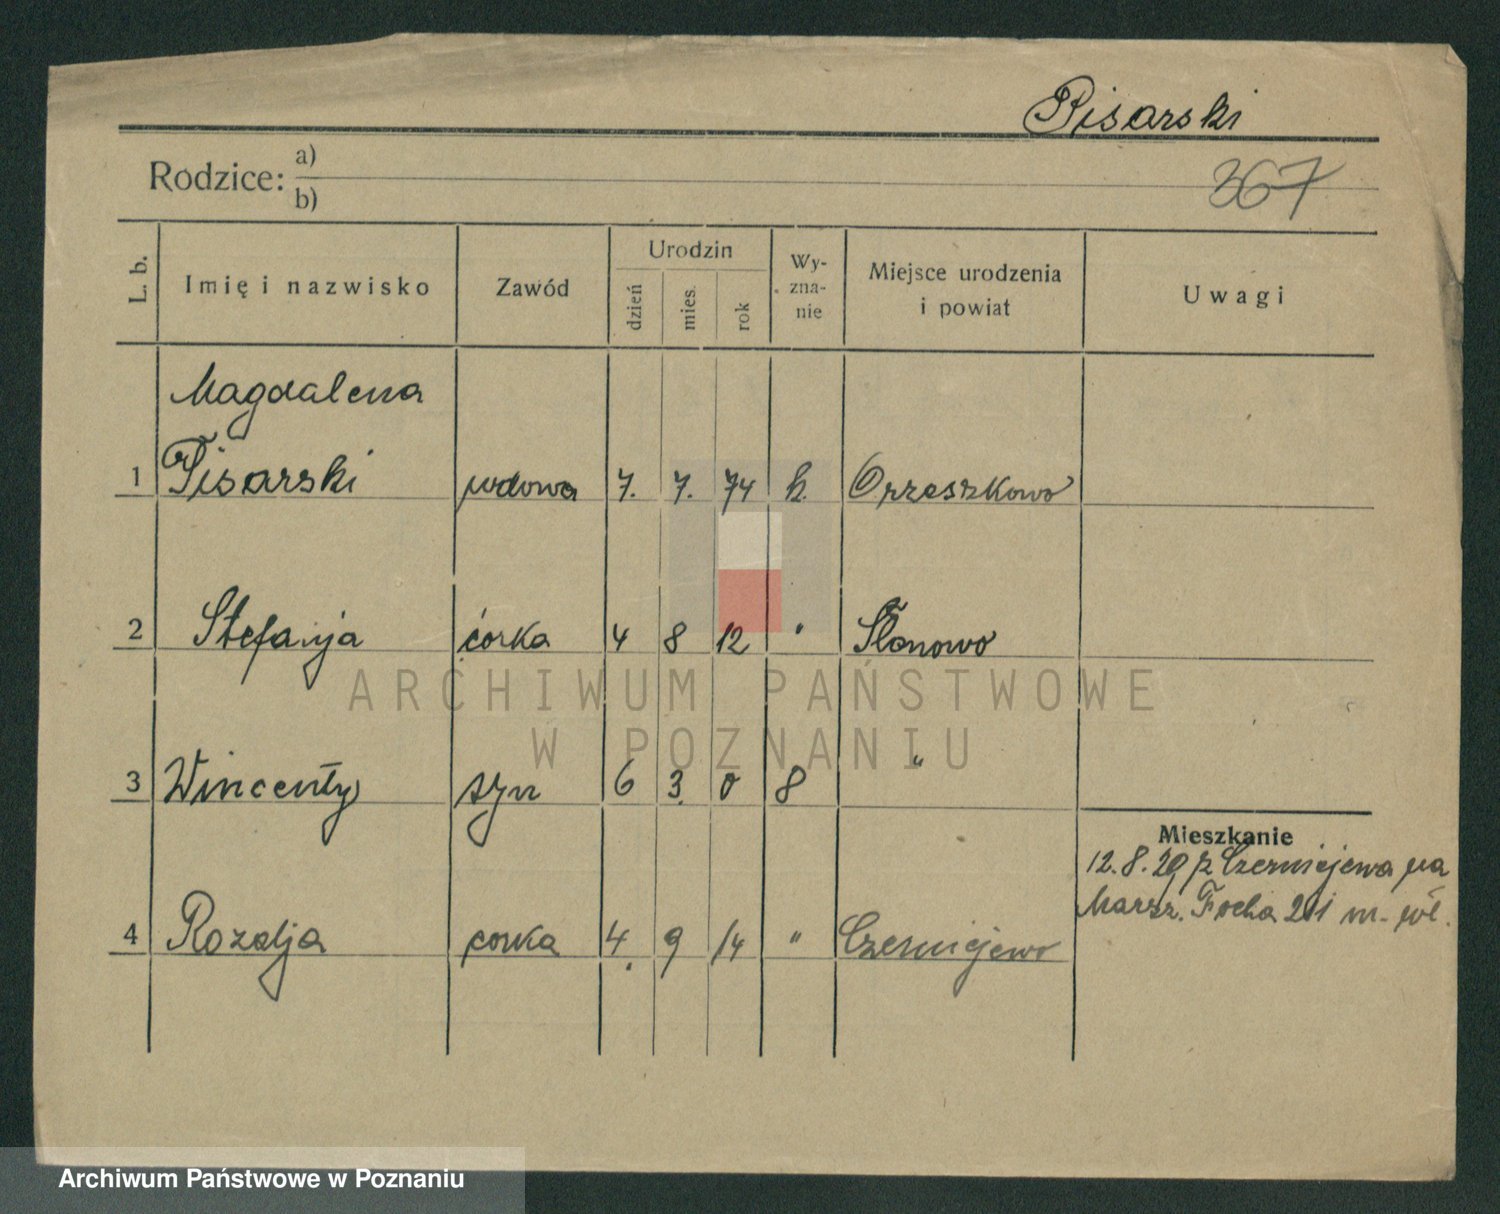 Pisarski
Rodzice: a)
b)
367
L. b. Imię i nazwisko Zawód Urodzin dzień mies. rok Wy-zna-nie Miejsce urodzenia i powiat Uwagi
Magdalena
1 Pisarski wdowa 7. 7. 74 k. Orzeszkowo
2 Stefanja córka 4 8 12 " Słonowo
3 Wincenty syn 6 3. 0 8 "
Mieszkanie
12. 8. 29 z Czerniejewa na
Marsz. Focha 211 m.
4 Rozalja corka 4. 9 14 " Czerniejewo
ARCHIWUM PAŃSTWOWE
W POZNANIU
Archiwum Państwowe w Poznaniu